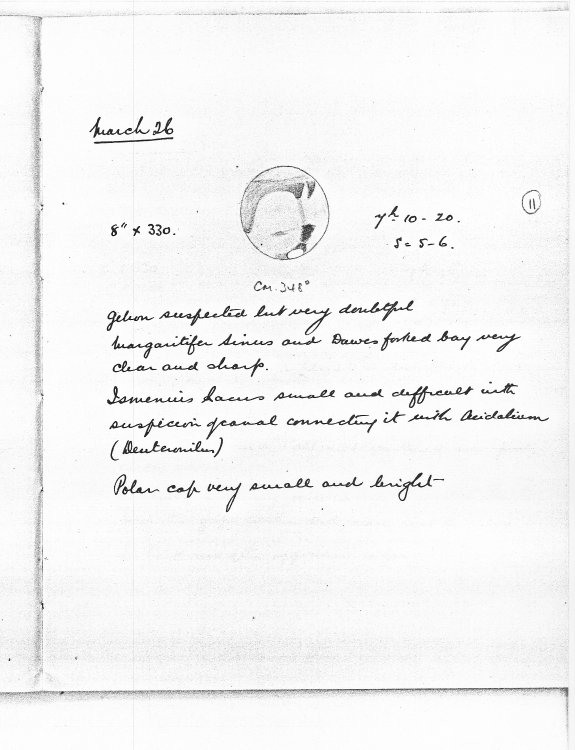 March 26
11
8" x 330.
7h 10 - 20.
S = 5-6.
Cm. 348°
Gehon suspected but very doubtful
Margaritifer Sinus and Dawes forked bay very
clear and sharp.
Ismenius Lacus small and difficult with
suspicion of canal connecting it with Acidalium
(Deuteronilus)
Polar cap very small and bright